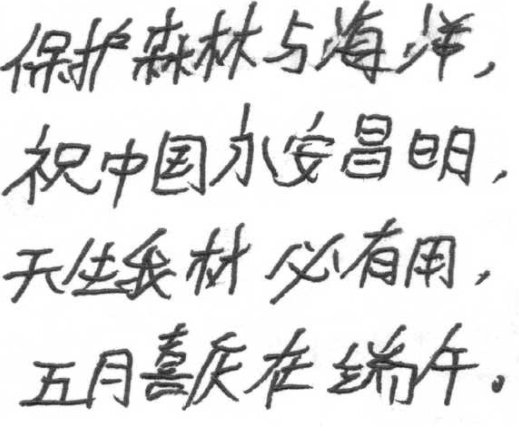 保护森林与海洋，
祝中国永安昌明，
天生我材必有用，
五月喜庆在端午。